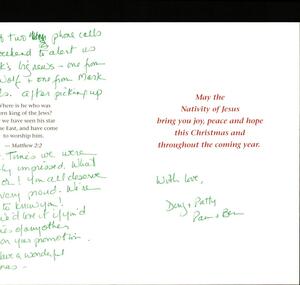 two phone calls
weekend to alert us
big news - one from
Wolf + one from Mark
. After picking up
here is he who was
rn king of the Jews?
we have seen his star
e East, and have come
to worship him.
— Matthew 2:2
Times we were
impressed. What
or! You all deserve
very proud. We're
to know you!
'd love it if you'd
of any other
on your promotion.
have a wonderful
May the
Nativity of Jesus
bring you joy, peace and hope
this Christmas and
throughout the coming year.
With love,
Doug + Patty